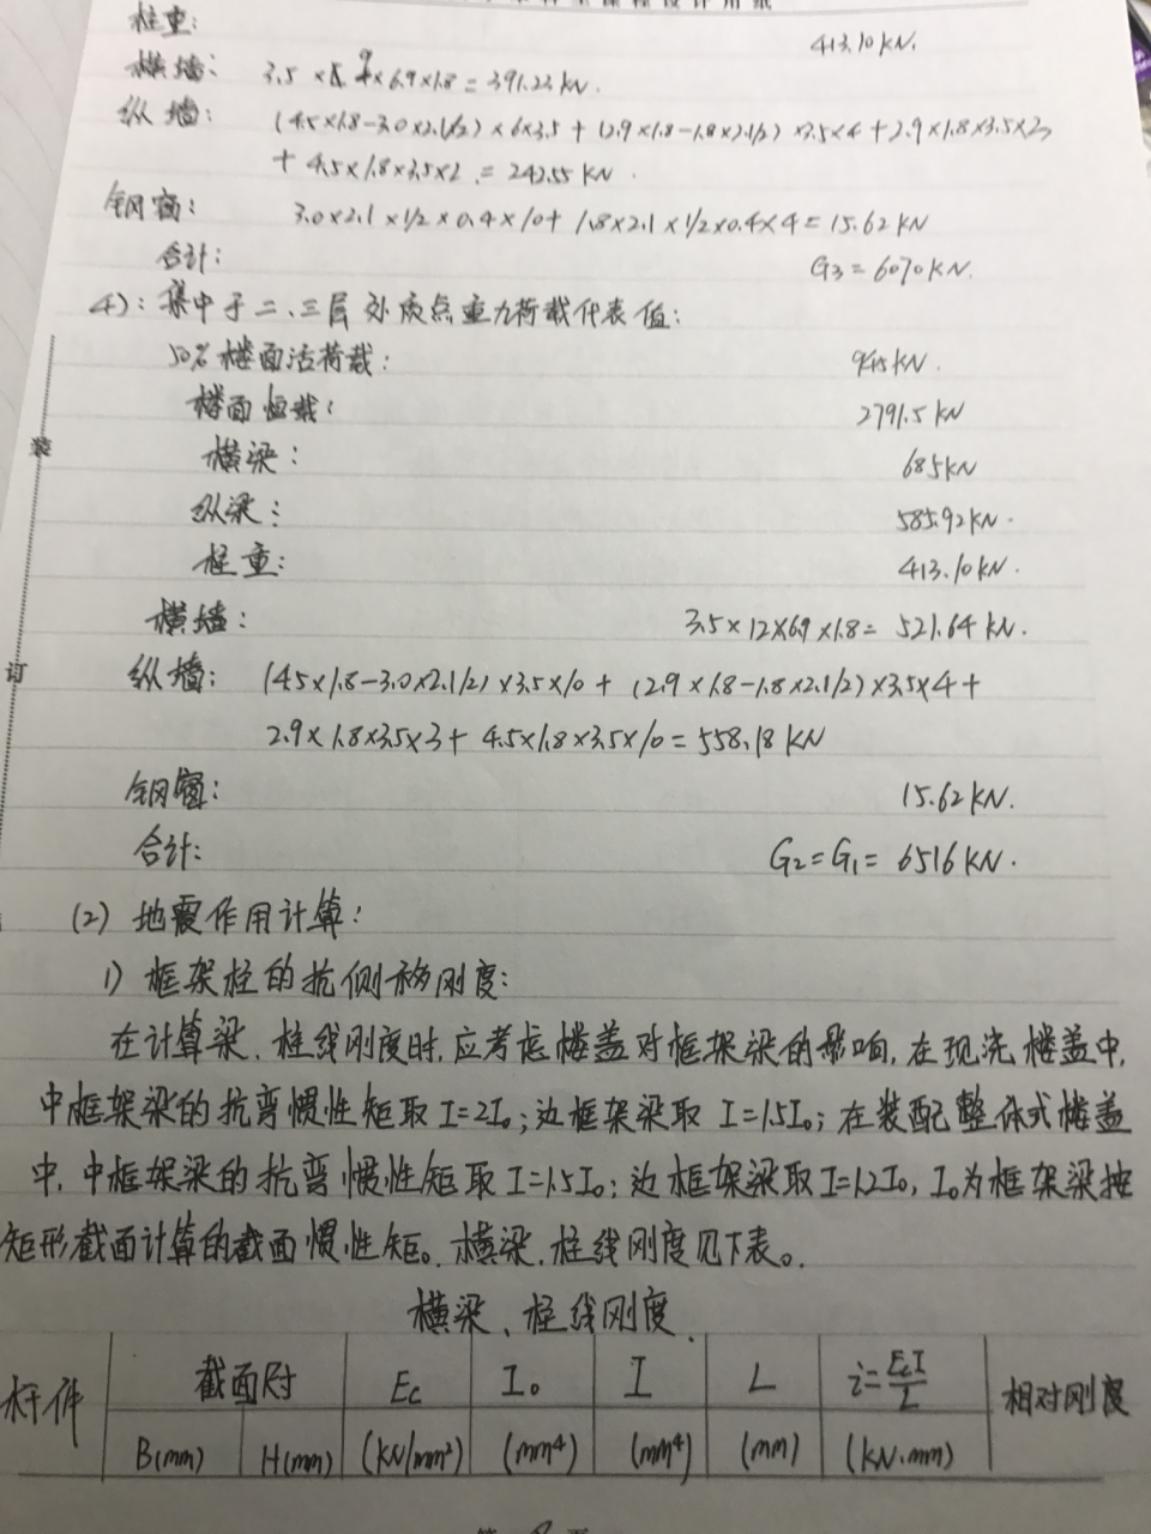 柱重: 413.10kN.
横墙: 3.5×9×6.9×1.8=391.23kN.
纵墙: (4.5×1.8-3.0×2.1/2)×6×3.5+(2.9×1.8-1.8×2.1/2)×3.5×4+2.9×1.8×3.5×2
+4.5×1.8×3.5×2.=242.55kN.
钢窗: 3.0×2.1×1/2×0.4×10+1.8×2.1×1/2×0.4×4=15.62kN
合计: G3=6070kN.
4):集中于二、三层处质点重力荷载代表值:
50%楼面活荷载: 945kN.
楼面恒载: 2791.5kN
横梁: 685kN
纵梁: 585.92kN.
柱重: 413.10kN.
横墙: 3.5×12×6.9×1.8=521.64kN.
纵墙: (4.5×1.8-3.0×2.1/2)×3.5×10+(2.9×1.8-1.8×2.1/2)×3.5×4+
2.9×1.8×3.5×3+4.5×1.8×3.5×10=558.18kN
钢窗: 15.62kN.
合计: G2=G1=6516kN.
(2)地震作用计算:
1)框架柱的抗侧移刚度:
在计算梁、柱线刚度时,应考虑楼盖对框架梁的影响,在现浇楼盖中,
中框架梁的抗弯惯性矩取I=2I0;边框架梁取I=1.5I0;在装配整体式楼盖
中,中框架梁的抗弯惯性矩取I=1.5I0;边框架梁取I=1.2I0,I0为框架梁按
矩形截面计算的截面惯性矩。横梁、柱线刚度见下表。
横梁、柱线刚度
杆件 截面尺寸 Ec I0 I L i=EcI/L 相对刚度
B(mm) H(mm) (kN/mm²) (mm⁴) (mm⁴) (mm) (kN.mm)
装
订